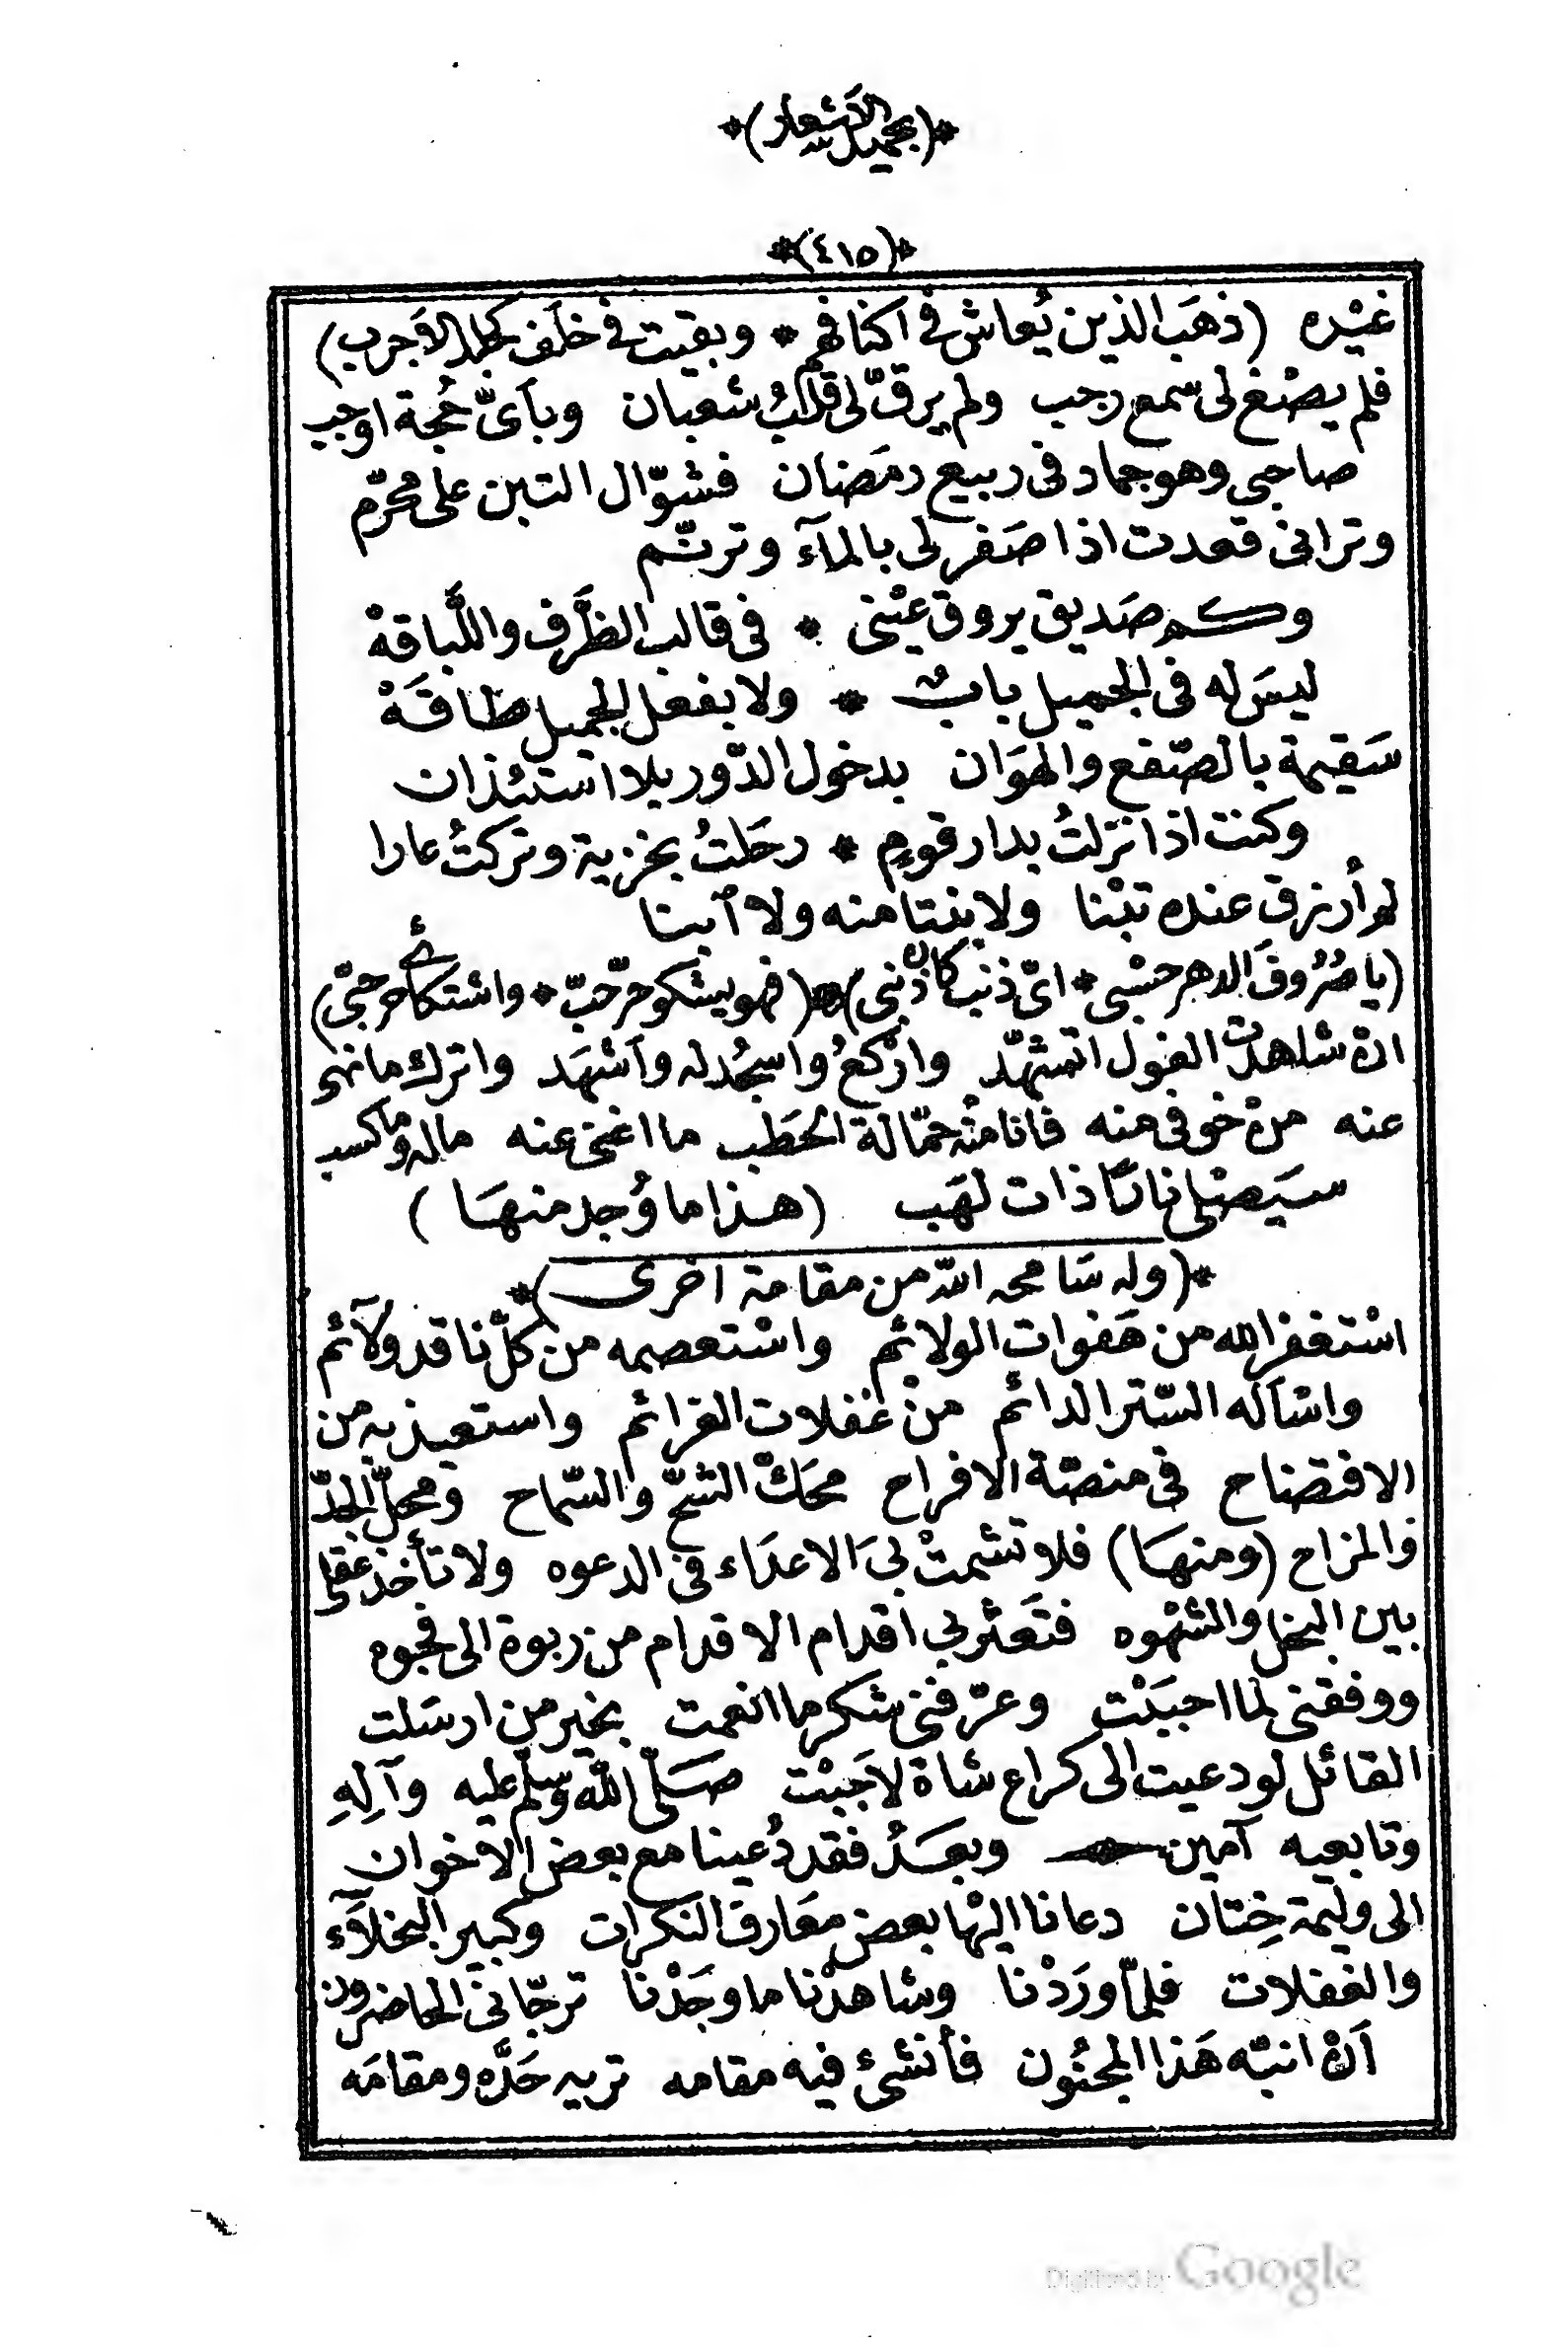 *(بجميل الأشعار)*
*(٤١٥)*
غيْره (ذهَب الذين يُعاش فى اكنافهم * وبقيت فى خلَف كجلد الاجرب)
فلم يصْغ لى سمع رجب ولم يرقّ لى قلْبُ شعبان وبأىّ حُجة اوجب
صاحبى وهو جماد فى ربيع رمَضان فشوّال التبن على محرّم
وترانى قعدت اذا صَفر لى بالمآء وترنّم
وكم صَديق يروق عيْنى * فى قالب الظَّرف واللَّباقهْ
ليسَ له فى الجميل بابٌ * ولا بفعل الجميل طاقَهْ
سَقيمة بالصّفع والهوَان بدخول الدّور بلا استئذان
وكنت اذا نزلتُ بدار قومٍ * رحَلتُ بخزية وتركتُ عارا
لم أرزق عنده تبْنا ولا بنتا منه ولا آبنا
(يا صُرُوفَ الدهر حسْبى * اىّ ذنب كان ذنبى) * (فهو يشكو حرّ حبّ * واشتكائى حر جبّى)
انْ شاهدْت الغول اتشهّد وارْكعُ واسجُد له وآشهَد واترك ما نهى
عنه منْ خوفى منه فانا منْه حمّالة الحَطب ما اغنى عنه ماله وما كسب
سيَصْلى نارًا ذات لهَب (هذا ما وُجد منهَا)
*(وله سَامحه الله من مقامة اخرى)*
اسْتغفر الله من هَفوات الولائم واسْتعصمه من كلّ ناقد ولآئم
واسْاَله السّتر الدائم منْ غفلات العزائم واستعيذ به من
الافتضاح فى منصّة الافراح محَكّ الشحّ والسّماح ومحلّ الجدّ
والمزاح (ومنهَا) فلا تشمتْ بىَ الاعدَاء فى الدعوه ولا تأخذ عقلى
بين البخل والشهْوه فتَعثر بى اقدام الاقدام من ربوة الى فجوه
ووفقنى لما احبَبْت وعرّفنى شكر ما انعمت بخير من ارسَلت
القائل لو دعيت الى كراع شاة لاَجبْت صَلّى الله وسلّم عليه وآلِهِ
وتابعيه آمين وبعدُ فقد دُعينا مع بعض الاخوان
الى وليمة خِتان دعانا اليْها بعض معَارف النكرات وكبير البخلآء
والغفلات فلمّا ورَدْنا وشاهدْنا ما وجَدْنا ترجّانى الحاضرون
اَنْ انبّه هَذا المجنُون فأنشئ فيه مقامه تريه حَدَّه ومقامَه